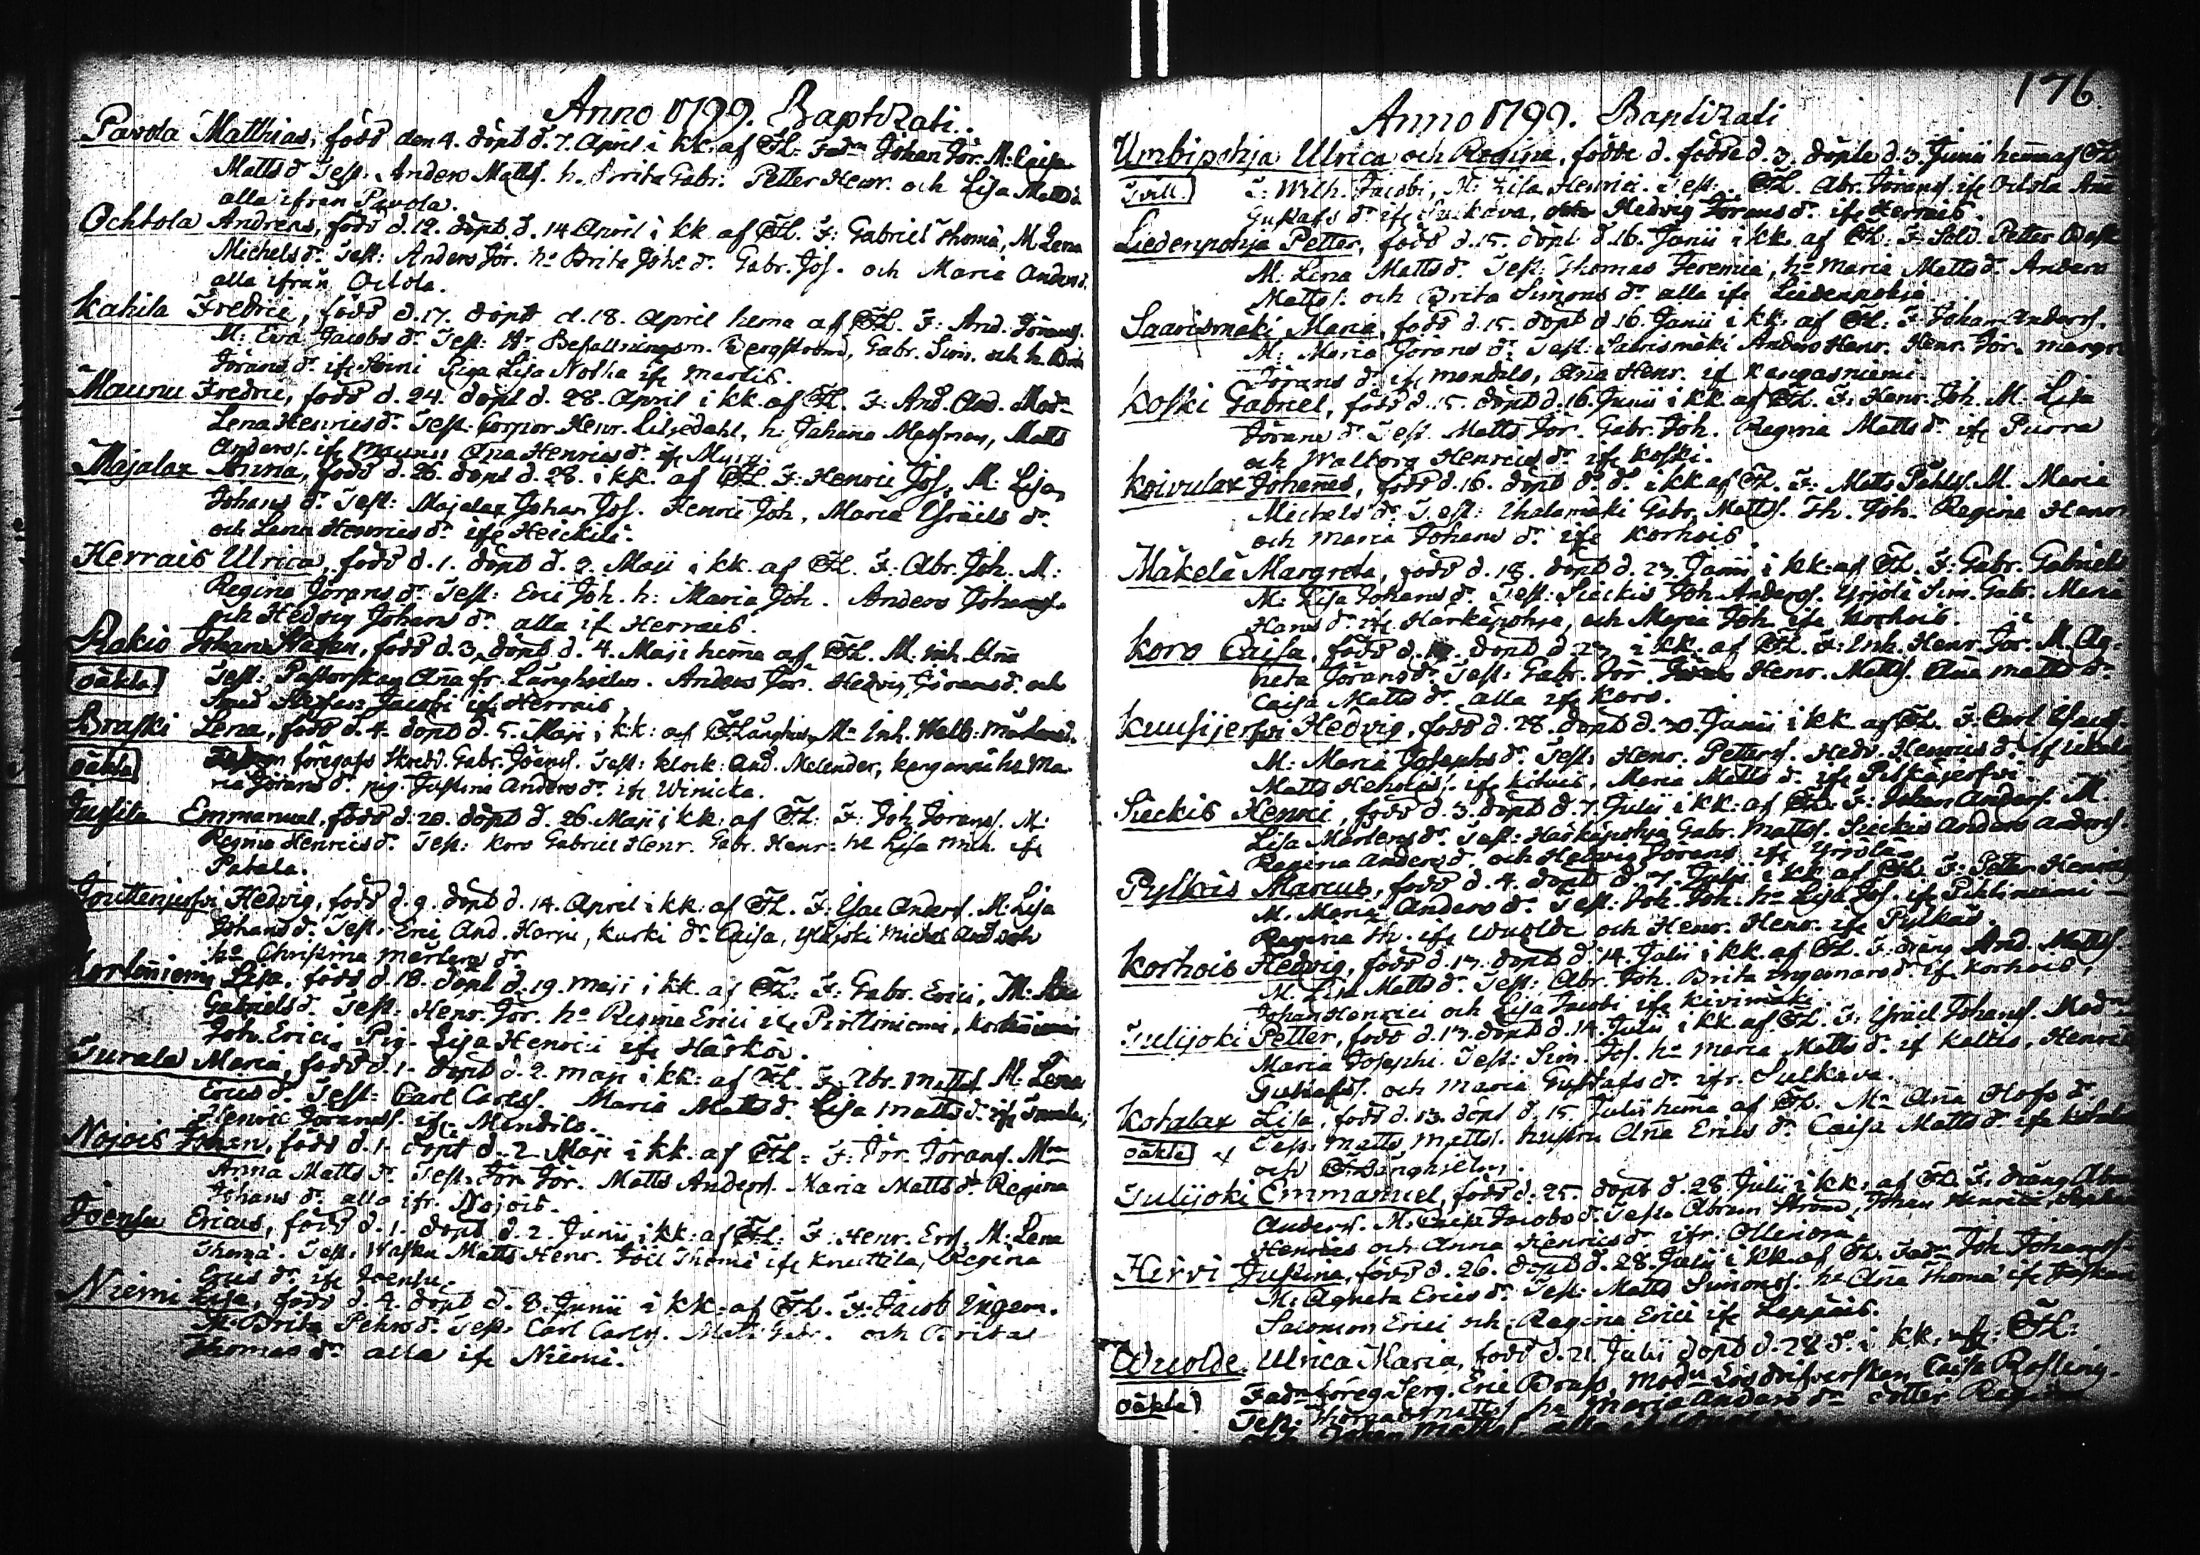 Anno 1799. Baptizati.
Pavola Matthias, född den 4. döpt d. 7. April i kk. af Th: Fadn Johan Jör. M. Caisa
Matts dr Test: Anders Matts. h. Brita Gabr. Petter Henr. och Lisa Matts dr
alla ifrån Pavola.
Ochtola Andreas, född d. 12. döpt d. 14 April i kk. af Th. F: Gabriel Thomæ, M. Lena
Michels dr. Test: Anders Jör. ho Brita Johs dr. Gabr. Jos. och Maria Anders d.
alla ifrån Octola.
Kahila Fredric, född d. 17. döpt d. 18. April hema af Th. F: And. Jörans.
M: Eva Jacobs dr Test: Hr Befallningsm. Bergström, Gabr. Sim. och h.
Jörans dr. ifr Pig. Lisa ifr Martis.
Maunu Fredric, född d. 24. döpt d. 28. April i kk. af Th. F: And. And. Modn
Lena Henrics dr. Test: Henr. Liljedahl, h: Johana Matts
Anders. ifr Maunu Ana Henrics dr. ifr
Majalax Anna, född d. 26. döpt d. 28. i kk. af Th. F: Henric Jos. M: Lisa
Johans dr. Test: Majalax Johan Jos. Henric Joh, Maria Israels dr.
och Lena Henrics dr. ifr Heickilä.
Herrais Ulrica, född d. 1. döpt d. 2. Maji i kk. af Th. F. Abr. Joh. M:
Regina Jörans dr. Test: Eric Joh. h: Maria Joh. Anders Johans.
och Hedvig Johans dr. alla if Herrais.
Rakio Johan Stafen, född d. 3. döpt d. 4. Maji hema af Th. M. Inh. Ana
oäkta Test: Pastorskan Ana fr. Långhielm. Anders Jör. Hedvig Görans d. och
Smed Stefan Jacobi if Herrais.
Braski Lena, född d. 4. döpt d. 5. Maji i kk: af Th Långhielm. Mr Inh. Walb:
oäkta Fadren föregafs Gabr. Jörans. Test: klock: And. Melender, ho Ma-
ria Jörans dr. pig. Justina Anders dr. ifr Winicka.
Jussila Emmanuel, född d. 20. döpt d. 26. Maji i kk: af Th: F: Joh. Jörans. M:
Regina Henrics dr. Test: Koro Gabriel Henr. Gabr. Henr: ho Lisa Mich. ifr
Patala.
Jouttenjerfvi Hedvig, född d. 9. döpt d. 14. April i kk: af Th. F: Isac Anders. M: Lisa
Johans dr. Test: Eric And. Harju, Kurki dr. Caisa, Michel And. och
ho Christina Mårtens dr
Kortoniemi Lisa, född d. 18. döpt d. 19 Maji i kk. af Th: F: Gabr. Erici, M:
Gabriels dr. Test: Henr. Jör. ho Regina Erici ifr Pirttiniemi,
Joh. Erici, Pig. Lisa Henrici ifr Härkö.
Turala Maria, född d. 1. döpt d. 2. Maji i kk: af Th. F: Abr. Matts. M: Lena
Erics dr. Test: Carl Carlss. Maria Matts dr. Lisa Matts dr. ifr Turala,
Henric Jöranss. ifr Mendilo.
Nojois Johan, född d. 1. döpt d. 2 Maji i kk. af Th: F: Jör. Jörans. Mn
Anna Matts dr Test: Jör. Jör. Matts Anders. Maria Matts dr. Regina
Johans dr. alla ifr. Nojois.
Joensu Ericus, född d. 1. döpt d. 2. Junii i kk: af Th: F: Henr. Ers. M: Lena
Thomæ. Test: Wasku Matts Henr. Joel Thomæ ifr Knuttila, Regina
Erics dr. ifr Joensu.
Niemi Lisa, född d. 4. döpt d. 8. Junii i kk: af Th. F: Jacob Ingem.
M: Brita Pehrs dr. Test: Carl Carlss. Matt Gabr. och Brita
Thomas dr. alla ifr Niemi.
176
Anno 1799. Baptizati
Umbipohja Ulrica och Regina, födde d. födde d. 3. döpte d. 3. Junii hema af Th
Tvill. F: Wilh. Jacobi, M: Lisa Henrici. Test: Th. Abr. Jörans. ifr Octola Ana
Gustafs dr. ifr Sulkava, och Hedvig Jörans dr. ifr Herrais.
Liedenpohja Petter, född d. 15. döpt d. 16. Junii i kk. af Th: F: Sold. Petter
M: Lena Matts dr. Test: Thomas Jeremiæ, ho Maria Matts dr. Anders
Matts. och Brita Simons dr. alla ifr Liedenpohja.
Saarismäki Maria, född d. 15. döpt d 16. Junii i kk. af Th: F: Johan Anders.
M: Maria Görans dr. Test: Saarismäki Anders Henr. Henr. Jör. Margr.
Jörans dr. ifr Mendilo, Ana Henr. if Kangasniemi.
Koski Gabriel, född d. 15. döpt d. 16. Junii i kk. af Th. F: Henr. Joh. M. Lisa
Jörans dr. Test. Matts Jör. Gabr. Joh. Regina Matts dr. ifr Purra
och Walborg Henrics dr. ifr Koski.
Koivulax Johanes, född d. 16. döpt d. do. i kk af Th. F: Matts Påhls. M. Maria
Michels dr. Test: Uhalamäki Gabr. Matts. Th. Joh. Regina Henr.
och Maria Johans dr. ifr Korhois.
Mäkelä Margreta, född d. 18. döpt d. 23 Junii i kk: af Th. F: Gabr. Gabriels
M: Lisa Johans dr. Test: Sieckis Joh. Anders. Yrjölä Sim. Gabr. Maria
Hans dr. ifr Härkäpohja, och Maria Joh. ifr Korhois.
Koro Caisa, född d. döpt d 23. i kk. af Th. F: Inh. Henr. Jör. M. Ag-
neta Jörans dr. Test: Gabr. Jör. Henr. Matts. Ana Matts dr.
Caisa Matts dr. alla ifr Koro.
Kuusijerfvi Hedvig, född d. 28. döpt d. 30 Junii i kk. af Th. F: Carl
M: Maria Josephs dr. Test: Henr. Petters. Hedv. Henrics dr. if
Matts ifr Maria Matts dr. ifr Pilkäjerfvi.
Sieckis Henric, född d. 3. döpt d. 7. Julii i kk: af Th. F: Johan Anders. M.
Lisa Mårtens dr. Test: Härkäpohja Gabr. Matts. Sieckis Anders Anders.
Regina Anders d. och Hedvig Görans ifr Yrjölä.
Pylkäis Marcus, född d. 4. döpt d. 7. Julii i kk af Th. F: Petter Henrics
M. Maria Anders dr. Test: Joh. Joh. ho Lisa Jos. ifr
Regina Th. ifr Wuolde och Henr. Henr. ifr Pylkäs.
Korhois Hedvig, född d. 13. döpt d. 14. Julii i kk. af Th. F: dräng And. Matts.
M. Lisa Matts dr. Test: Abr. Joh. Brita Ingemars dr. if Korhois,
Johan Henrici och Lisa Jacobi ifr Kivimäki.
Tulijoki Petter, född d. 13. döpt d. 14. Julii i kk. af Th. F: Israel Johans. Modn
Maria Josephi. Test: Sim. Jos. ho Maria Matts dr. if Kaltila, Henric
Gustafs. och Maria Gustafs dr. ifr. Sulkava.
Kotalax Lisa, född d. 13. döpt d. 15. Julii hema af Th. Mn Ana Olofs dr.
oäkta Test: Matts Matts. hustru Ana Erics dr. Caisa Matts dr. ifr Kotalax
och Th Långhielm.
Tulijoki Emmanuel, född d. 25. döpt d. 28. Julii i kk. af Th. F: dräng Abra
Anders. M: Caisa Jacobs d. Test: Abram Johan Henrici,
Henrics och Anna Henrics dr. ifr.
Hirvi Justina, född d. 26. döpt d. 28. Julii i kk. af Th. Fadn Joh. Johans.
M: Agneta Erics dr. Test: Matts Simons. ho Ana Thomæ ifr
Salomon Erici och Regina Erici ifr Leppäis.
Wuolde Ulrica Maria, född d. 21. Julii döpt d. 28 do i kk. af: Th:
oäkta Fadn föreg. Serg. Eric Brask, Modn Caisa Rosling.
Test: Thomas Matts. ho Maria Anders dr dotter Regina